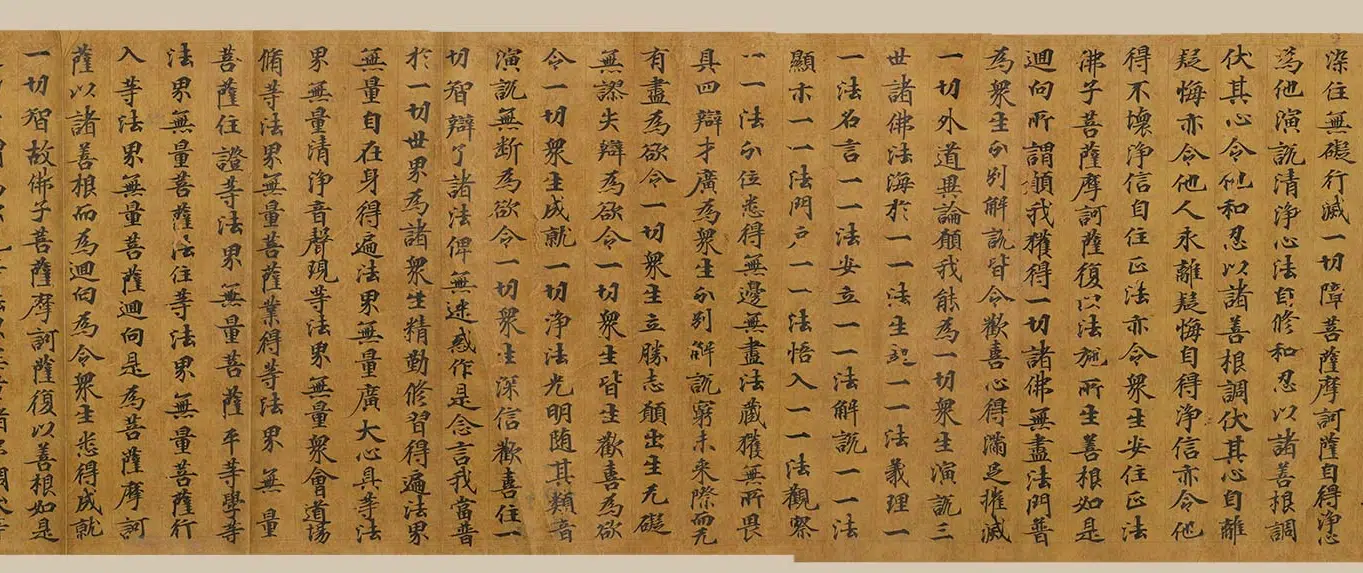 染住無礙行滅一切障菩薩摩訶薩自得淨心
為他演說清淨心法自修和忍以諸善根調
伏其心令他和忍以諸善根調伏其心自離
疑悔亦令他人永離疑悔自得淨信亦令他
得不壞淨信自住正法亦令衆生安住正法
佛子菩薩摩訶薩復以法施所生善根如是
迴向所謂願我獲得一切諸佛無盡法門普
為衆生分別解說皆令歡喜心得滿足摧滅
一切外道異論願我能為一切衆生演說三
世諸佛法海於一一法生起一一法義理一
一法名言一一法安立一一法解說一一法
顯示一一法門戶一一法悟入一一法觀察
一一法分位悉得無邊無盡法藏獲無所畏
具四辯才廣為衆生分別解說窮未來際而无
有盡為欲令一切衆生立勝志願出生无礙
無謬失辯為欲令一切衆生皆生歡喜為欲
令一切衆生成就一切淨法光明随其類音
演說無断為欲令一切衆生深信歡喜住一
切智辯了諸法俾無迷惑作是念言我當普
於一切世界為諸衆生精勤修習得遍法界
無量自在身得遍法界無量廣大心具等法
界無量清淨音聲現等法界無量衆會道場
脩等法界無量菩薩業得等法界無量
菩薩住證等法界無量菩薩平等學等
法界無量菩薩法住等法界無量菩薩行
入等法界無量菩薩迴向是為菩薩摩訶
薩以諸善根而為迴向為令衆生悉得成就
一切智故佛子菩薩摩訶薩復以善根如是